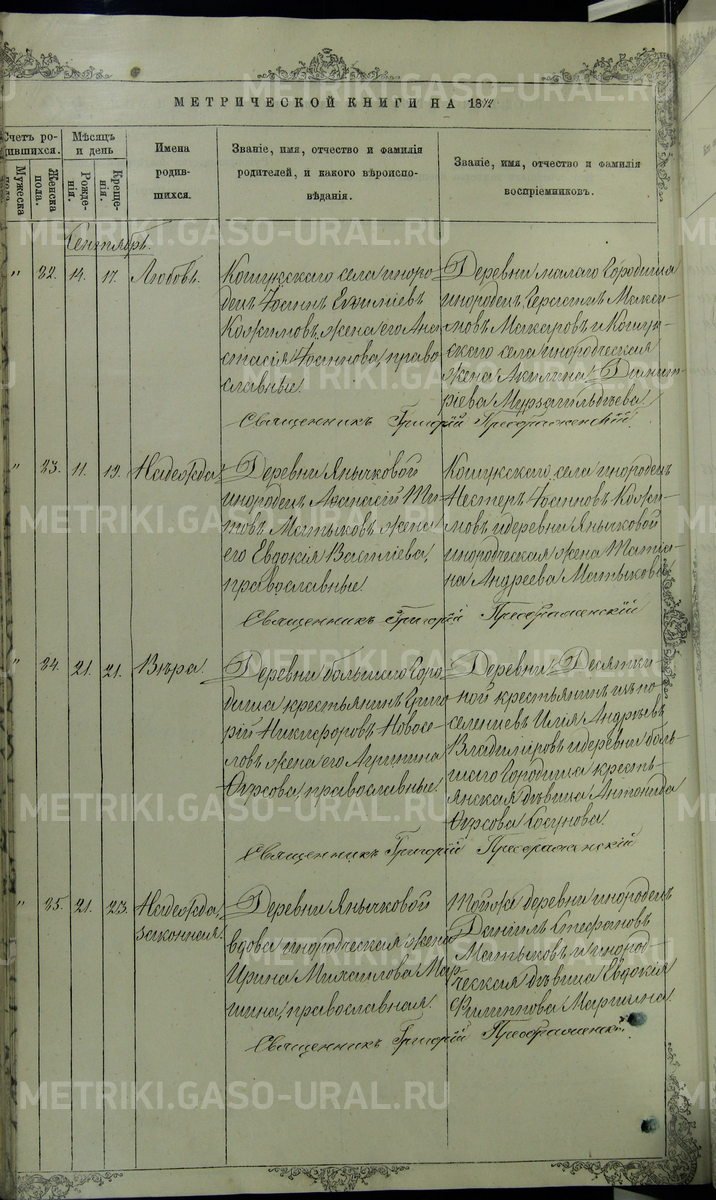 МЕТРИЧЕСКОЙ КНИГИ НА 1872
Счетъ родившихся.
Мѣсяцъ и день
Имена родившихся.
Званіе, имя, отчество и фамилія родителей, и какого вѣроисповѣданія.
Званіе, имя, отчество и фамилія воспріемниковъ.
Мужеска пола.
Женска пола.
Рожденія.
Крещенія.
Сентябрь.
" 32. 14. 17. Любовь.
Кошукскаго села иноро-
децъ Іоаннъ Евфиміевъ
Кожимовъ, жена его Ана-
стасія Іоаннова, право-
славные.
Деревни малаго Городища
инородецъ Герасимъ Макси-
мовъ Макаровъ и Кошук-
скаго села инородческая
жена Акилина Димит-
ріева Мурзагильдѣева
Священникъ Григорій Преображенскій
" 33. 11. 19. Надежда
Деревни Янычковой
инородецъ Аѳанасій Ти-
товъ Матыковъ, жена
его Евдокія Василіева,
православные.
Кошукскаго села инородецъ
Несторъ Іоанновъ Кожи-
мовъ и деревни Янычковой
инородческая жена Татіа-
на Андреева Матыкова
Священникъ Григорій Преображенскій
" 34. 21. 21. Вѣра.
Деревни большаго Горо-
дища крестьянинъ Григо-
рій Никифоровъ Новосе-
ловъ, жена его Агрипина
Ѳирсова, православные.
Деревни Десятки-
ной крестьянинъ изъ по-
селенцевъ Илія Андреевъ
Владиміровъ и деревни боль-
шаго Городища кресть-
янская дѣвица Антонида
Ѳирсова Сосунова.
Священникъ Григорій Преображенскій
" 35. 21. 23. Надежда,
законная.
Деревни Янычковой
вдова инородческая жена
Ирина Михаилова Мар-
шина, православная
Той же деревни инородецъ
Даніилъ Стефановъ
Матыковъ и инород-
ческая дѣвица Евдокія
Филиппова Маршина
Священникъ Григорій Преображенскій
METRIKI.GASO-URAL.RU